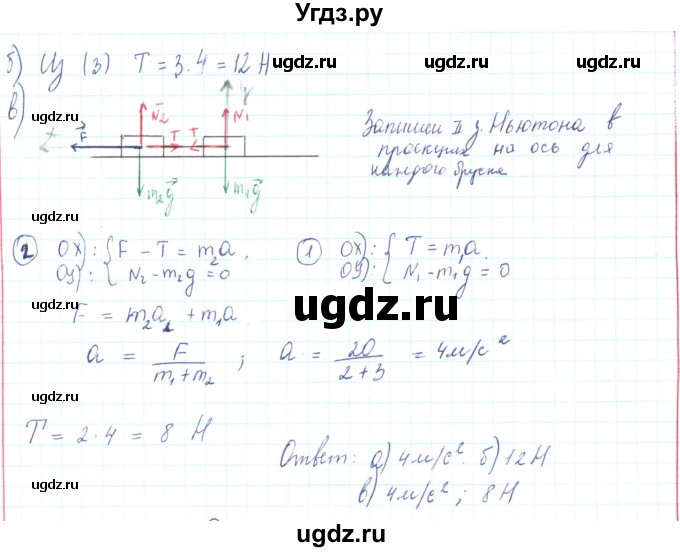 Угдз.ру
б) Из (3) T = 3 · 4 = 12 Н
ugdz.ru ugdz.ru
в)
ugdz.ru
y
N₂ N₁
x F T T
m₂g m₁g
Запишем II з. Ньютона в
проекция на ось для
каждого бруска
ugdz.ru ugdz.ru
② OX): { F - T = m₂a,
OY): { N₂ - m₂g = 0
① OX): { T = m₁a,
OY): { N₁ - m₁g = 0
ugdz.ru
F = m₂a + m₁a
ugdz.ru
ugdz.ru
a = F / (m₁ + m₂) ; a = 20 / (2 + 3) = 4 м/с²
ugdz.ru ugdz.ru
T = 2 · 4 = 8 Н
Ответ: а) 4 м/с². б) 12 Н
в) 4 м/с² ; 8 Н
ugdz.ru ugdz.ru
ugdz.ru